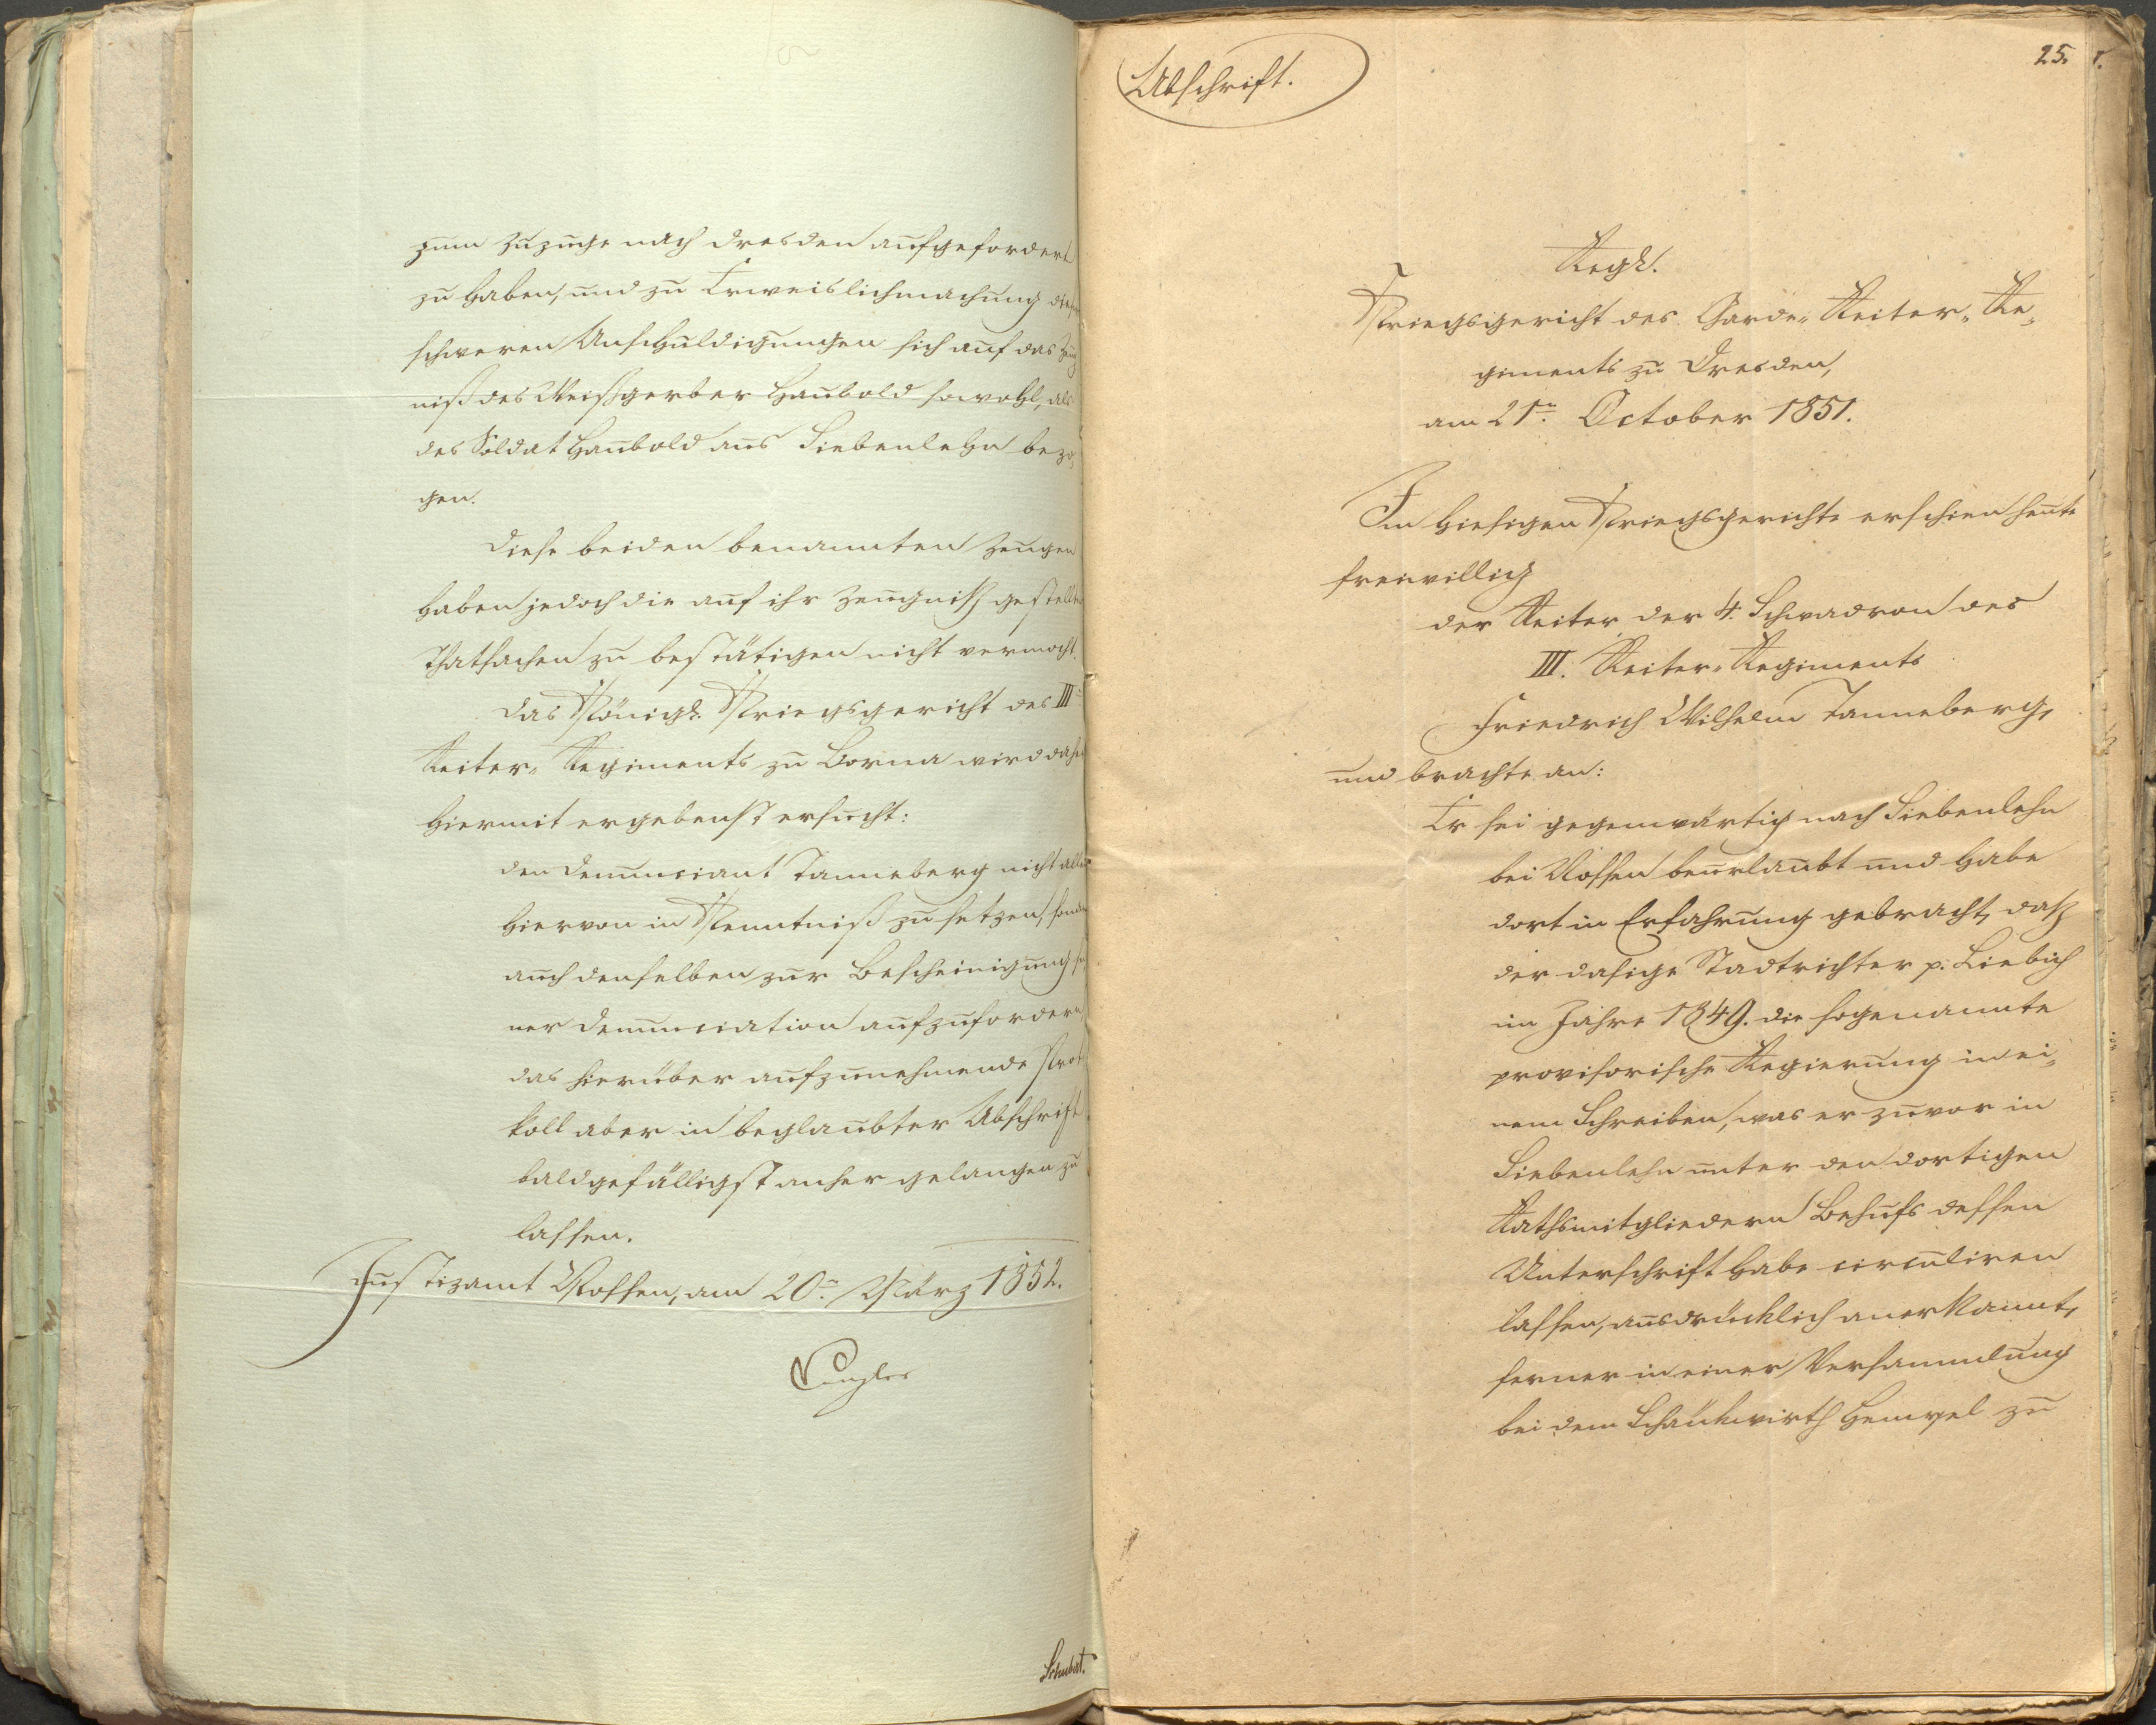 zum Zuzuge nach Dresden aufgefordert
zu haben, und zu Erweislichmachung dieser
schweren Anschuldigungen sich auf das Zeug
niß des Weißgerber Haubold sowohl, als
des Soldat Haubold aus Siebenlehn bezo-
gen.
Diese beiden benannten Zeugen
haben jedoch die auf ihr Zeugniß gestellten
Thatsachen zu bestätigen nicht vermocht.
Das Königl. Kriegsgericht des III.
Reiter-Regiments zu Borna wird daher
hiermit ergebenst ersucht:
den Denunciant Tanneberg nicht allein
hiervon in Kenntniß zu setzen, sondern
auch denselben zur Bescheinigung sei
ner Denunciation aufzufordern,
das hierüber aufzunehmende Proto
koll aber in beglaubter Abschrift
baldgefälligst anher gelangen zu
lassen.
Justizamt Nossen, am 20n März 1852.
Canzler
Schubert.
Abschrift.
25.
Regs.
Kriegsgericht des Garde-Reiter-Re-
giments zu Dresden,
am 21n October 1851.
Im hiesigen Kriegsgerichte erschien heute
freiwillig
der Reiter der 4. Schwadron des
III. Reiter-Regiments
Friedrich Wilhelm Tanneberg,
und brachte an:
Er sei gegenwärtig nach Siebenlehn
bei Nossen beurlaubt und habe
dort in Erfahrung gebracht, daß
der dasige Stadtrichter p. Liebich
im Jahre 1849. die sogenannte
provisorische Regierung in ei-
nem Schreiben, was er zuvor in
Siebenlehn unter den dortigen
Rathsmitgliedern Behufs dessen
Unterschrift habe circuliren
lassen, ausdrücklich anerkannt,
ferner in einer Versammlung
bei dem Schänkwirth Hempel zu